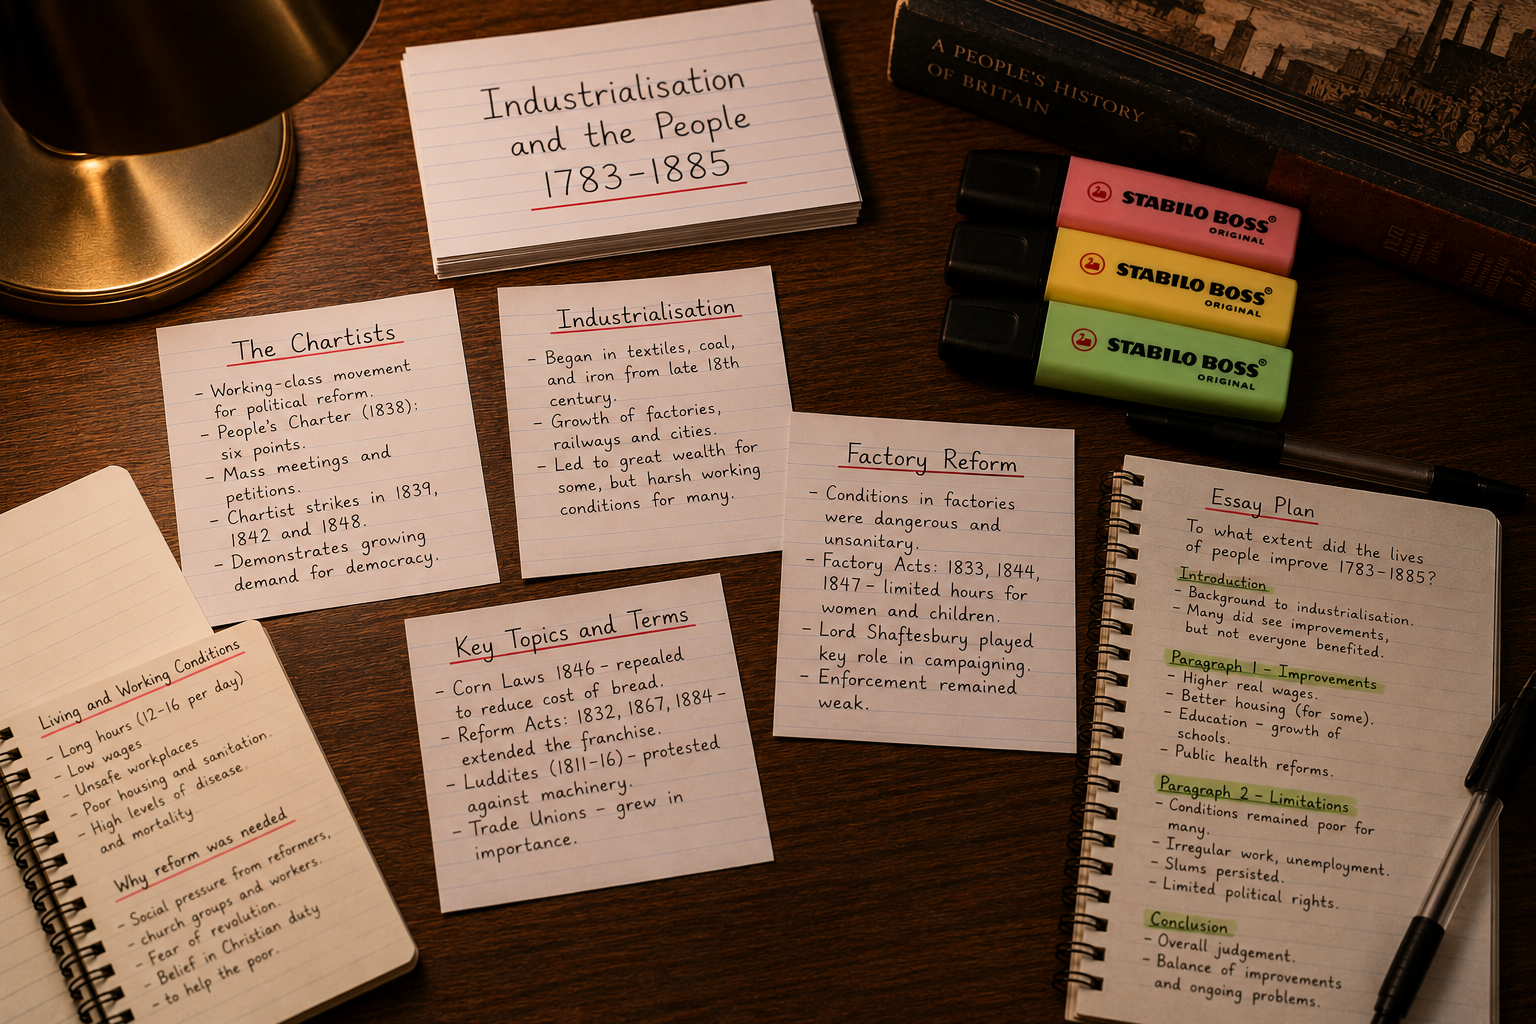 Industrialisation
and the People
1783–1885
A PEOPLE'S HISTORY
OF BRITAIN
STABILO BOSS®
ORIGINAL
STABILO BOSS®
ORIGINAL
STABILO BOSS®
ORIGINAL
The Chartists
– Working-class movement
for political reform.
– People's Charter (1838):
six points.
– Mass meetings and
petitions.
– Chartist strikes in 1839,
1842 and 1848.
– Demonstrates growing
demand for democracy.
Industrialisation
– Began in textiles, coal,
and iron from late 18th
century.
– Growth of factories,
railways and cities.
– Led to great wealth for
some, but harsh working
conditions for many.
Factory Reform
– Conditions in factories
were dangerous and
unsanitary.
– Factory Acts: 1833, 1844,
1847 – limited hours for
women and children.
– Lord Shaftesbury played
key role in campaigning.
– Enforcement remained
weak.
Key Topics and Terms
– Corn Laws 1846 – repealed
to reduce cost of bread.
– Reform Acts: 1832, 1867, 1884 –
extended the franchise.
– Luddites (1811–16) – protested
against machinery.
– Trade Unions – grew in
importance.
Living and Working Conditions
– Long hours (12–16 per day)
– Low wages
– Unsafe workplaces
– Poor housing and sanitation.
– High levels of disease.
and mortality.
Why reform was needed
– Social pressure from reformers,
– church groups and workers.
– Fear of revolution.
– Belief in Christian duty
– to help the poor.
Essay Plan
To what extent did the lives
of people improve 1783–1885?
Introduction
– Background to industrialisation.
– Many did see improvements,
but not everyone benefited.
Paragraph 1 – Improvements
– Higher real wages.
– Better housing (for some).
– Education – growth of
schools.
– Public health reforms.
Paragraph 2 – Limitations
– Conditions remained poor for
many.
– Irregular work, unemployment.
– Slums persisted.
– Limited political rights.
Conclusion
– Overall judgement.
– Balance of improvements
and ongoing problems.